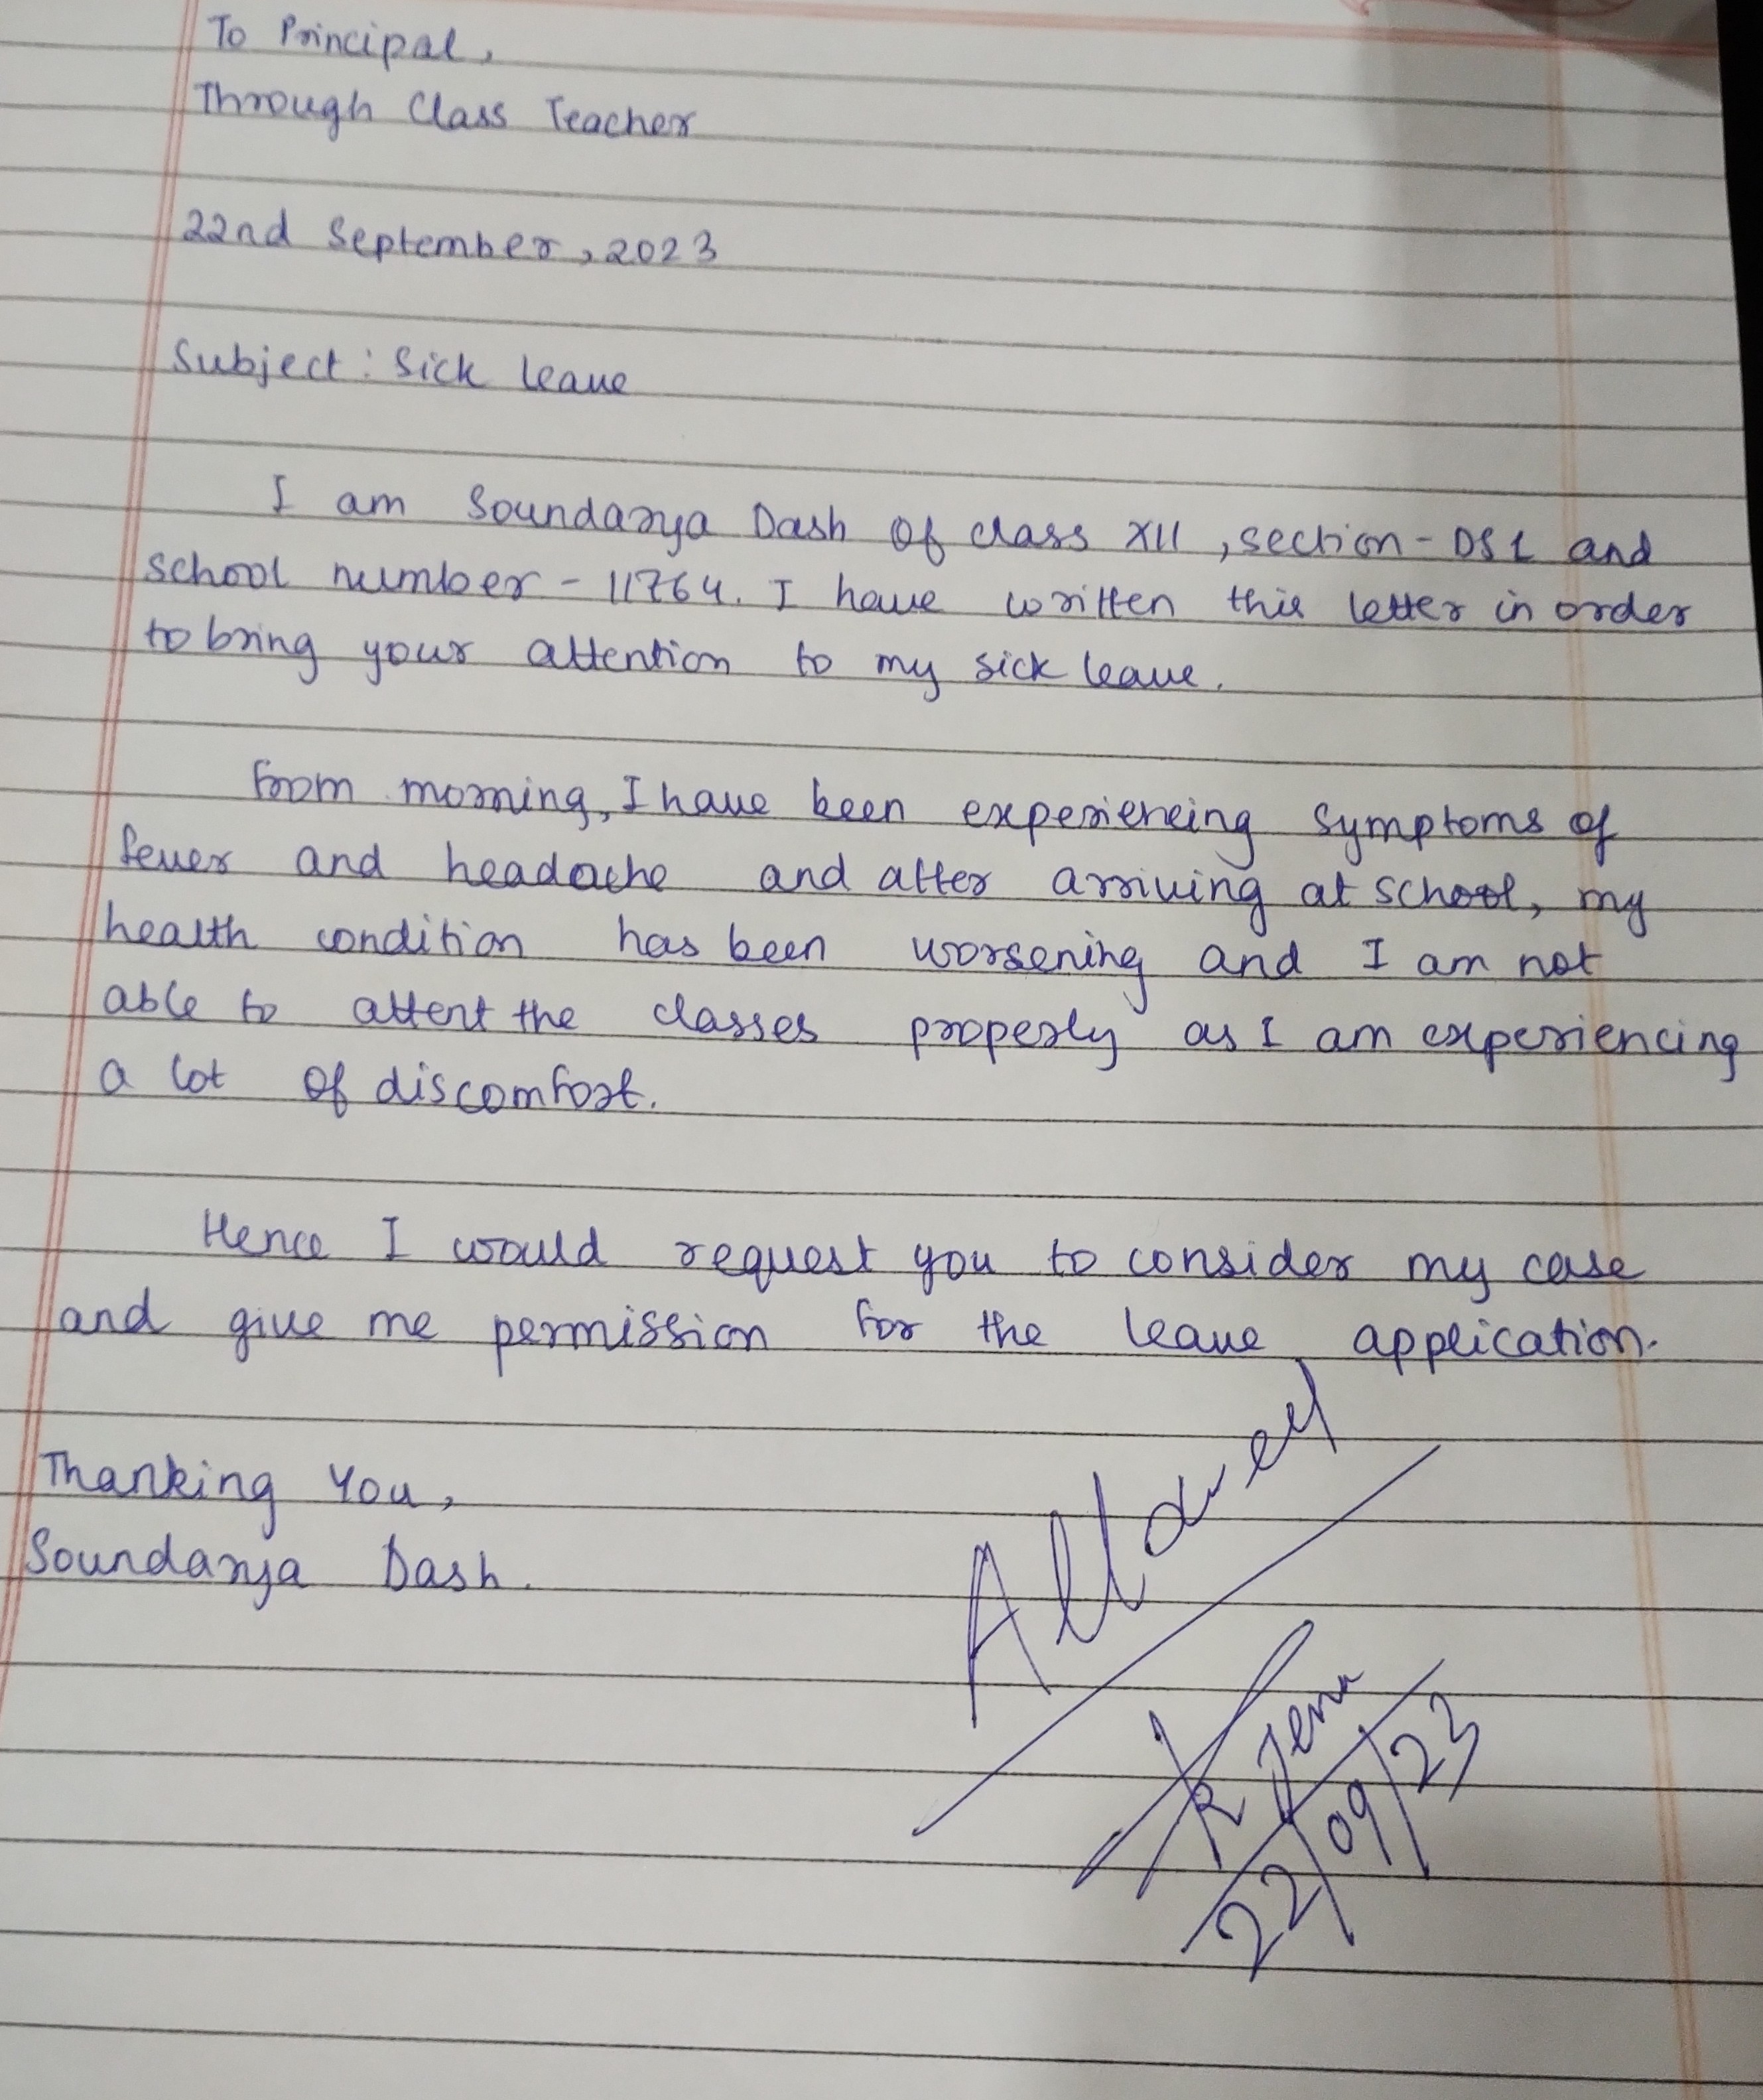 To Principal,
Through Class Teacher
22nd September, 2023
Subject: Sick leave
I am Soundarya Dash of class XII, section - DS1 and
school number - 11764. I have written this letter in order
to bring your attention to my sick leave.
From morning, I have been experiencing symptoms of
fever and headache and after arriving at school, my
health condition has been worsening and I am not
able to attent the classes properly as I am experiencing
a lot of discomfort.
Hence I would request you to consider my case
and give me permission for the leave application.
Thanking You,
Soundarya Dash.
Allowed
R Jena
22/09/23